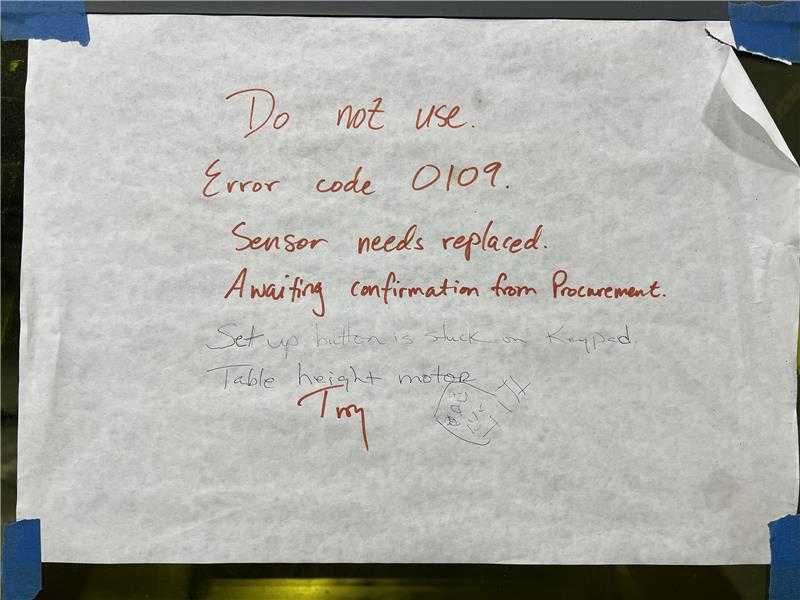 Do not use.
Error code 0109.
Sensor needs replaced.
Awaiting confirmation from Procurement.
Set up button is stuck on Keypad
Table height motor
Troy